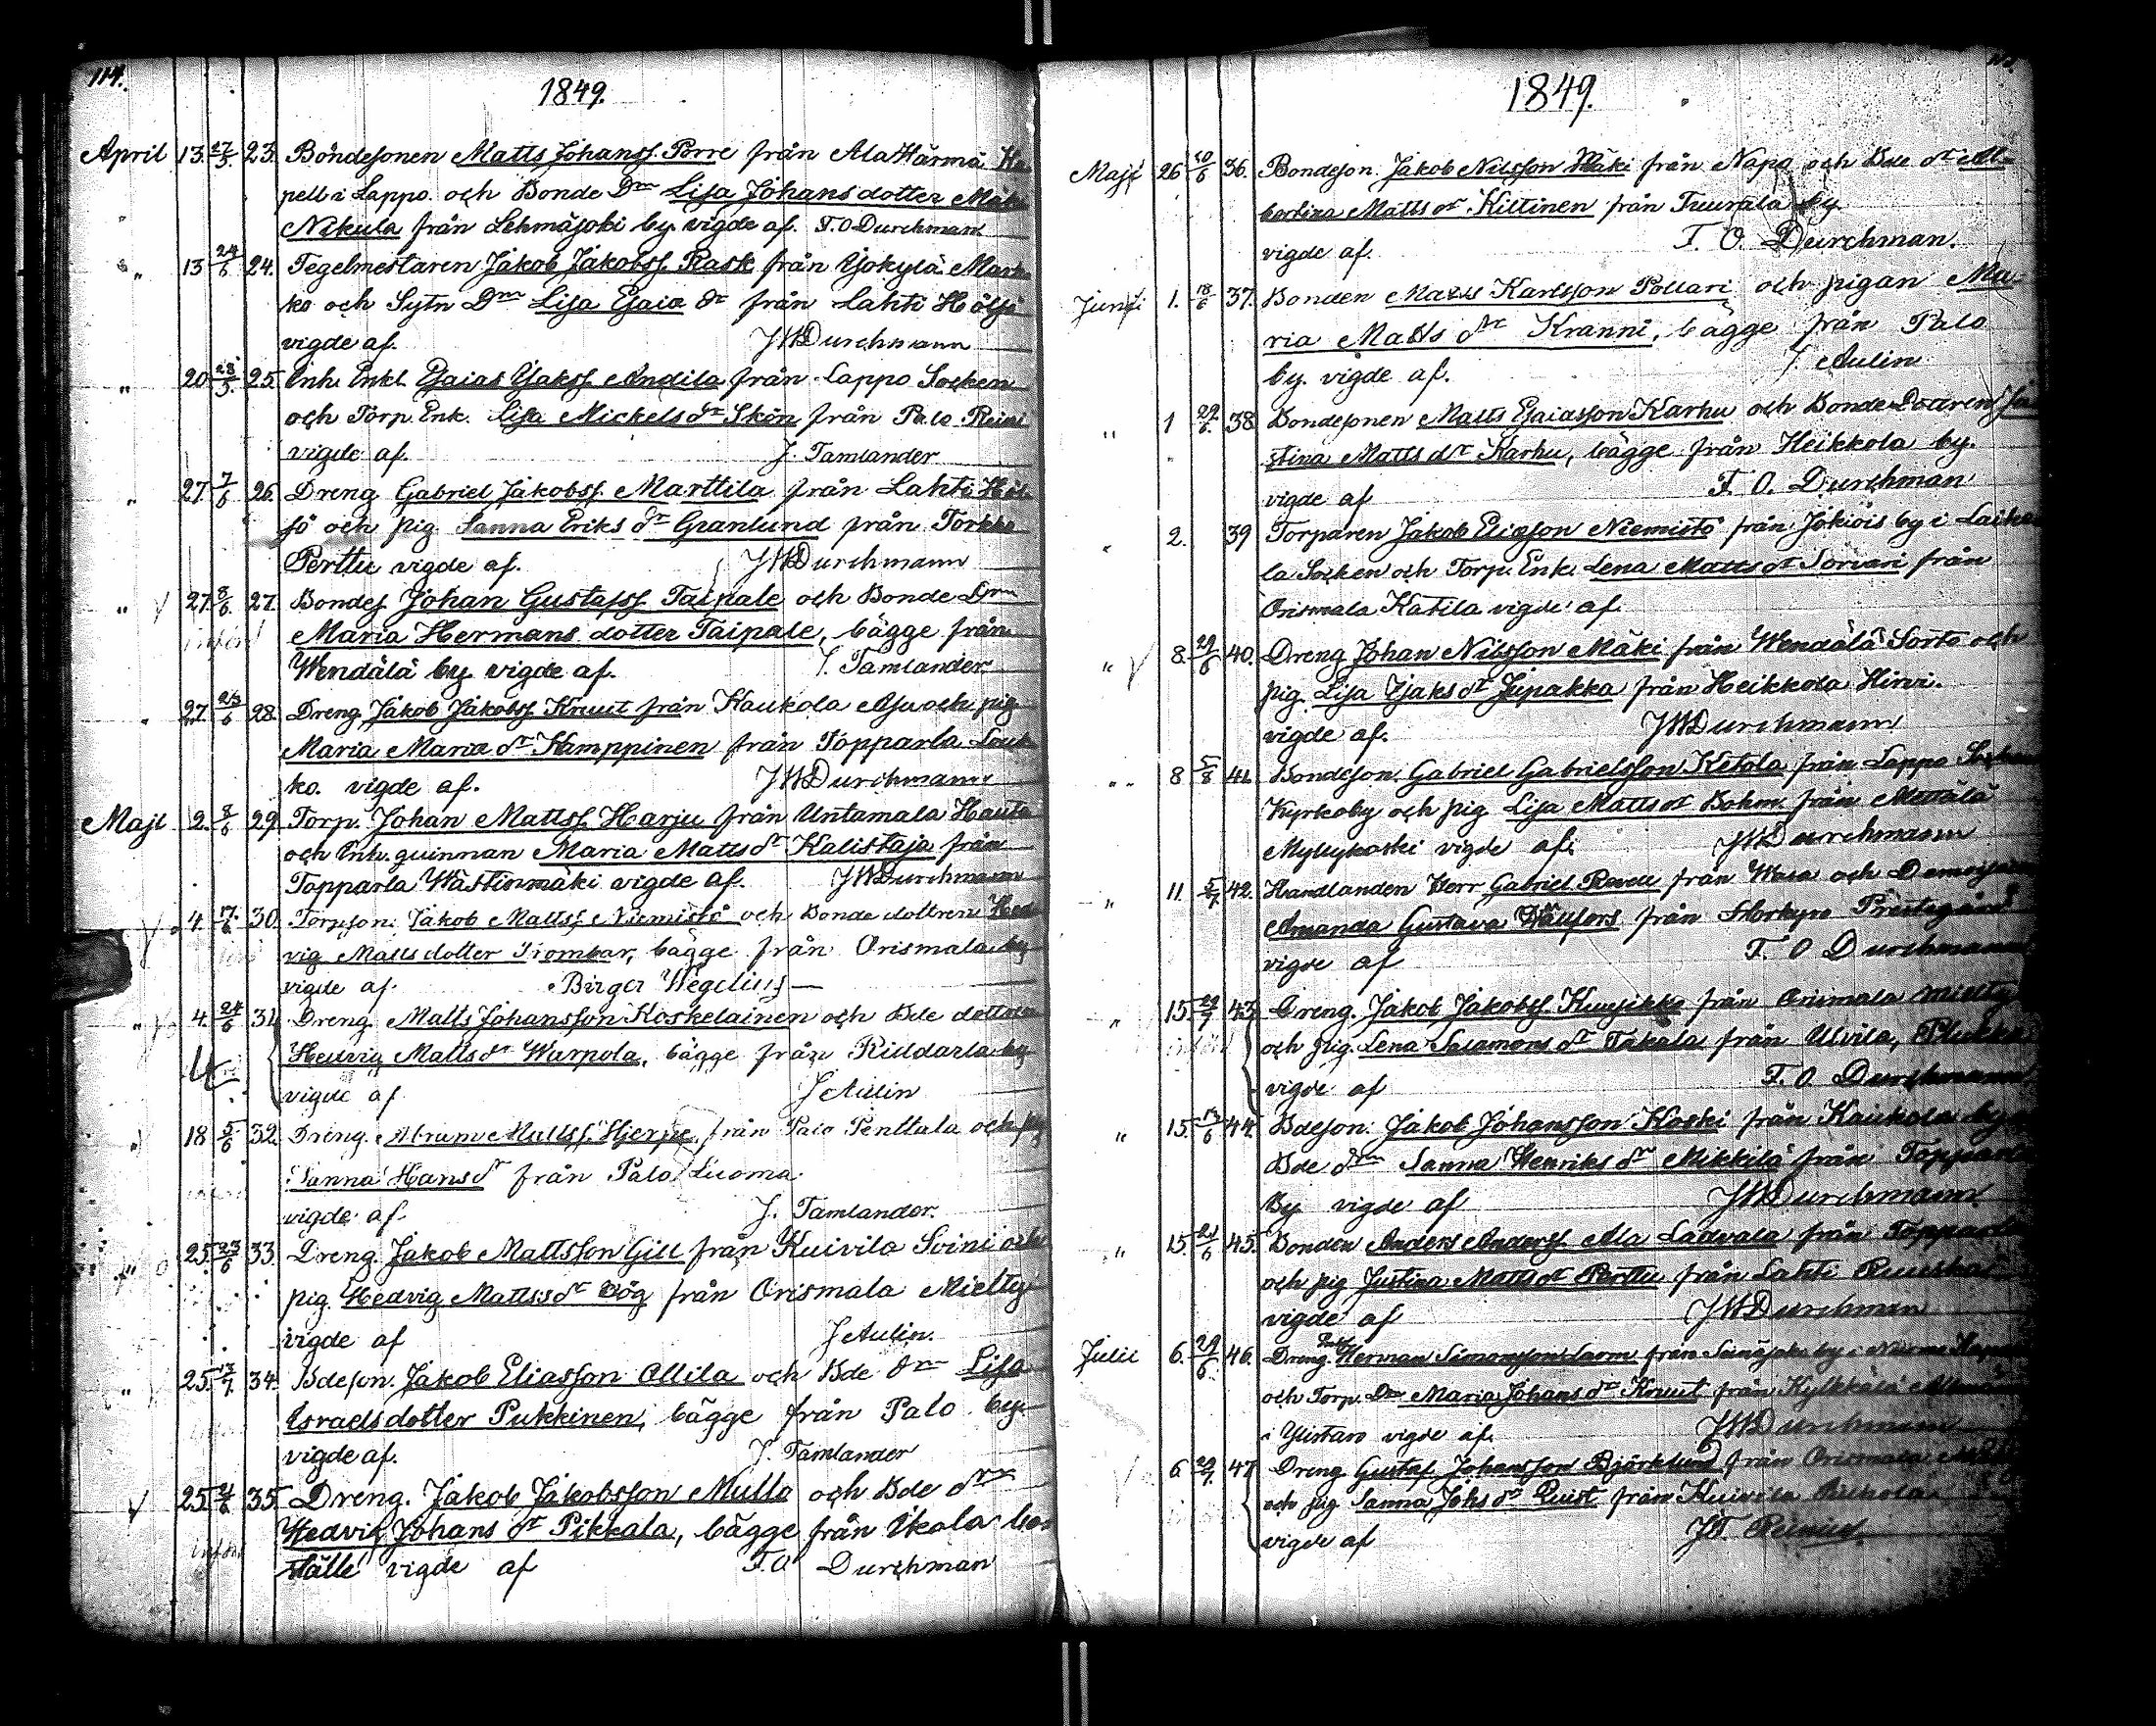 114.
1849.
April 13. 27/5. 23. Bondesonen Matts Johanss. Porre från Ala Härmä Ka
pell i Lappo och Bonde Drn Lisa Johansdotter Mäki
Nikula från Lehmäjoki by. vigde af. F. O Durchman
" 13 24/6 24. Tegelmestaren Jakob Jakobss. Rask från Yökylä Mark
ko och Sytn Drn Lisa Esaia dr från Lahti Höljö
vigde af. JWDurchmann
" 20 28/5. 25. Enh. Enkl. Esaias Isakss. Andila från Lappo Socken
och Torp. Enk. Lisa Mickels dr Skön från Palo Reini
vigde af. J. Tamlander
" 27. 7/6 26. Dreng Gabriel Jakobss. Marttila från Lahti Höl
jö och pig Sanna Eriks dr Granlund från Torkko
Perttu vigde af. JWDurchmann
" 27. 8/6. 27. Bondes Johan Gustafss. Taipale och Bonde Drn
Maria Hermans dotter Taipale, bägge från
Wendälä by vigde af. J. Tamlander
" 27. 28. Dreng Jakob Jakobss. Knuut från Kaukola Asu och pig
Maria Maria dr Kamppinen från Topparla Louk
ko. vigde af. JWDurchmann
Maji 2. 8/6 29. Torp. Johan Mattss. Harju från Untamala Hauta
och Enh. quinnan Maria Matts dr Kalistaja från
Topparla Wästinmäki vigde af. JWDurchmann
4. 17/6 30. Torpson. Jakob Mattss. Niemistö och Bonde dottren Hed
vig Matts dotter Trombar, bägge från Orismala by
vigde af Birger Wegelius
" 4. 24/6 31. Dreng Matts Johansson Koskelainen och Bde dottren
Hedvig Matts dr Warpola, bägge från Riddarla by
vigde af J Aulin
" 18 5/6 32. Dreng. Abram Mattss. Hjerpe från Palo Penttala och pig
Sanna Hans dr från Palo Luoma
vigde af. J. Tamlander.
" 25. 23/6 33. Dreng. Jakob Mattsson Gill från Kuivila Soini och
pig. Hedvig Matts dr Hög från Orismala Mielty
vigde af J Aulin.
" 25. 17/7. 34. Bdeson. Jakob Eliasson Ollila och Bde drn Lisa
Israelsdotter Pukkinen, bägge från Palo by.
vigde af. J. Tamlander
25. 35. Dreng. Jakob Jakobsson Mulla och Bde drn
införd Hedvig Johans dr Pikkala, bägge från Ikola bo
ställe vigde af F. O Durchman
1849.
Maji 26 10/6 36. Bondeson. Jakob Nilsson Mäki från Napo och Bde dr Al
bertina Matts dr Kittinen från Tuurala by
vigde af. F. O. Durchman.
Junii 1. 18/6 37. Bonden Matts Karlsson Pollari och pigan Ma
ria Matts dr Kranni, bägge från Palo
by. vigde af. J. Aulin
" 1 29/6. 38. Bondesonen Matts Esaiasson Karhu och Bonde Dottren Ju
stina Matts dr Karhu, bägge från Heikkola by.
vigde af F. O. Durchman
" 2. 39 Torparen Jakob Eliasson Niemistö från Jokiöis by i Laihe
la Socken och Torp. Enk. Lena Matts dr Sorvari från
Orismala Katila vigde af.
" 8. 29/6 40. Dreng Johan Nilsson Mäki från Wendälä Sorto och
pig. Lisa Isaks dr Jupakka från Heikkola Hirvi.
vigde af. JWDurchmann
" 8 5/8 41. Bondeson. Gabriel Gabrielsson Ketola från Lappo Socken
Kyrkoby och pig Lisa Matts dr Bohm från Mettälä
Myllykoski vigde af. JWDurchmann
" 11. 5/7 42. Handlanden Herr Gabriel från Wasa och
Amanda Gustava från Storkyro Prestegård
vigde af F. O Durchmann
" 15 29/7 43. Dreng. Jakob Jakobss. Kuusikko från Orismala Mielty
och pig. Lena Salamons dr Takala från Ulvila,
vigde af F. O Durchmann
" 15. 44. Bdeson. Jakob Johansson Koski från Kaukola by
Bde drn Sanna Henriks dr Mikkilä från Topparla
By vigde af JWDurchmann
" 15. 21/6 45. Bonden Anders Anderss. Ala Ladvala från Topparla
och pig Justina Matts dr Perttu från Lahti
vigde af JWDurchman
Julii 6. 29/6 46. Dreng. Herman Simonsson från Seinäjoki by i Nurmo Kapell
och Torp. Drn Maria Johans dr Knuut från Kylkkälä
i Ylistaro vigde af. JWDurchmann
6 29/7. 47 Dreng Gustaf Johansson Björklund från Orismala
och pig Sanna Johs dr Quist från Kuivila
vigde af